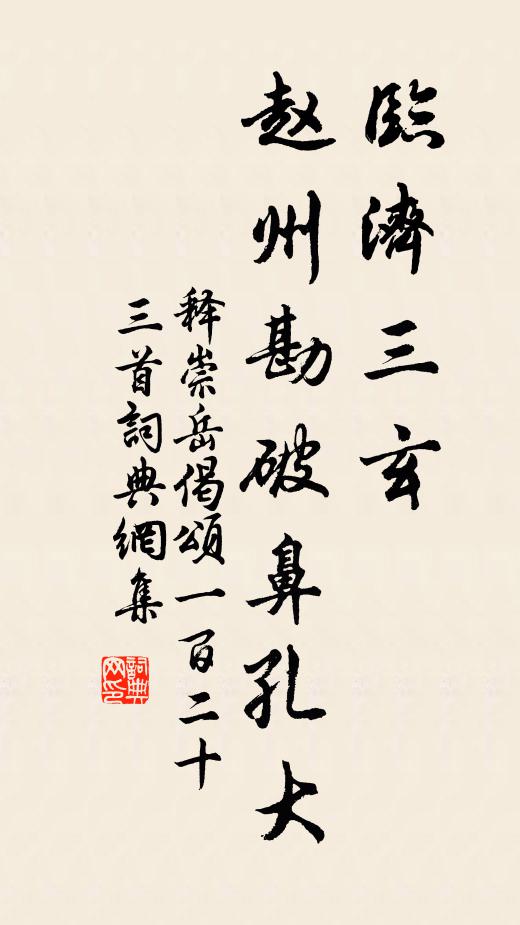 臨濟三玄
赵州勘破鼻孔大
释崇岳偈頌一百二十
三首詞典網集
詞典网印